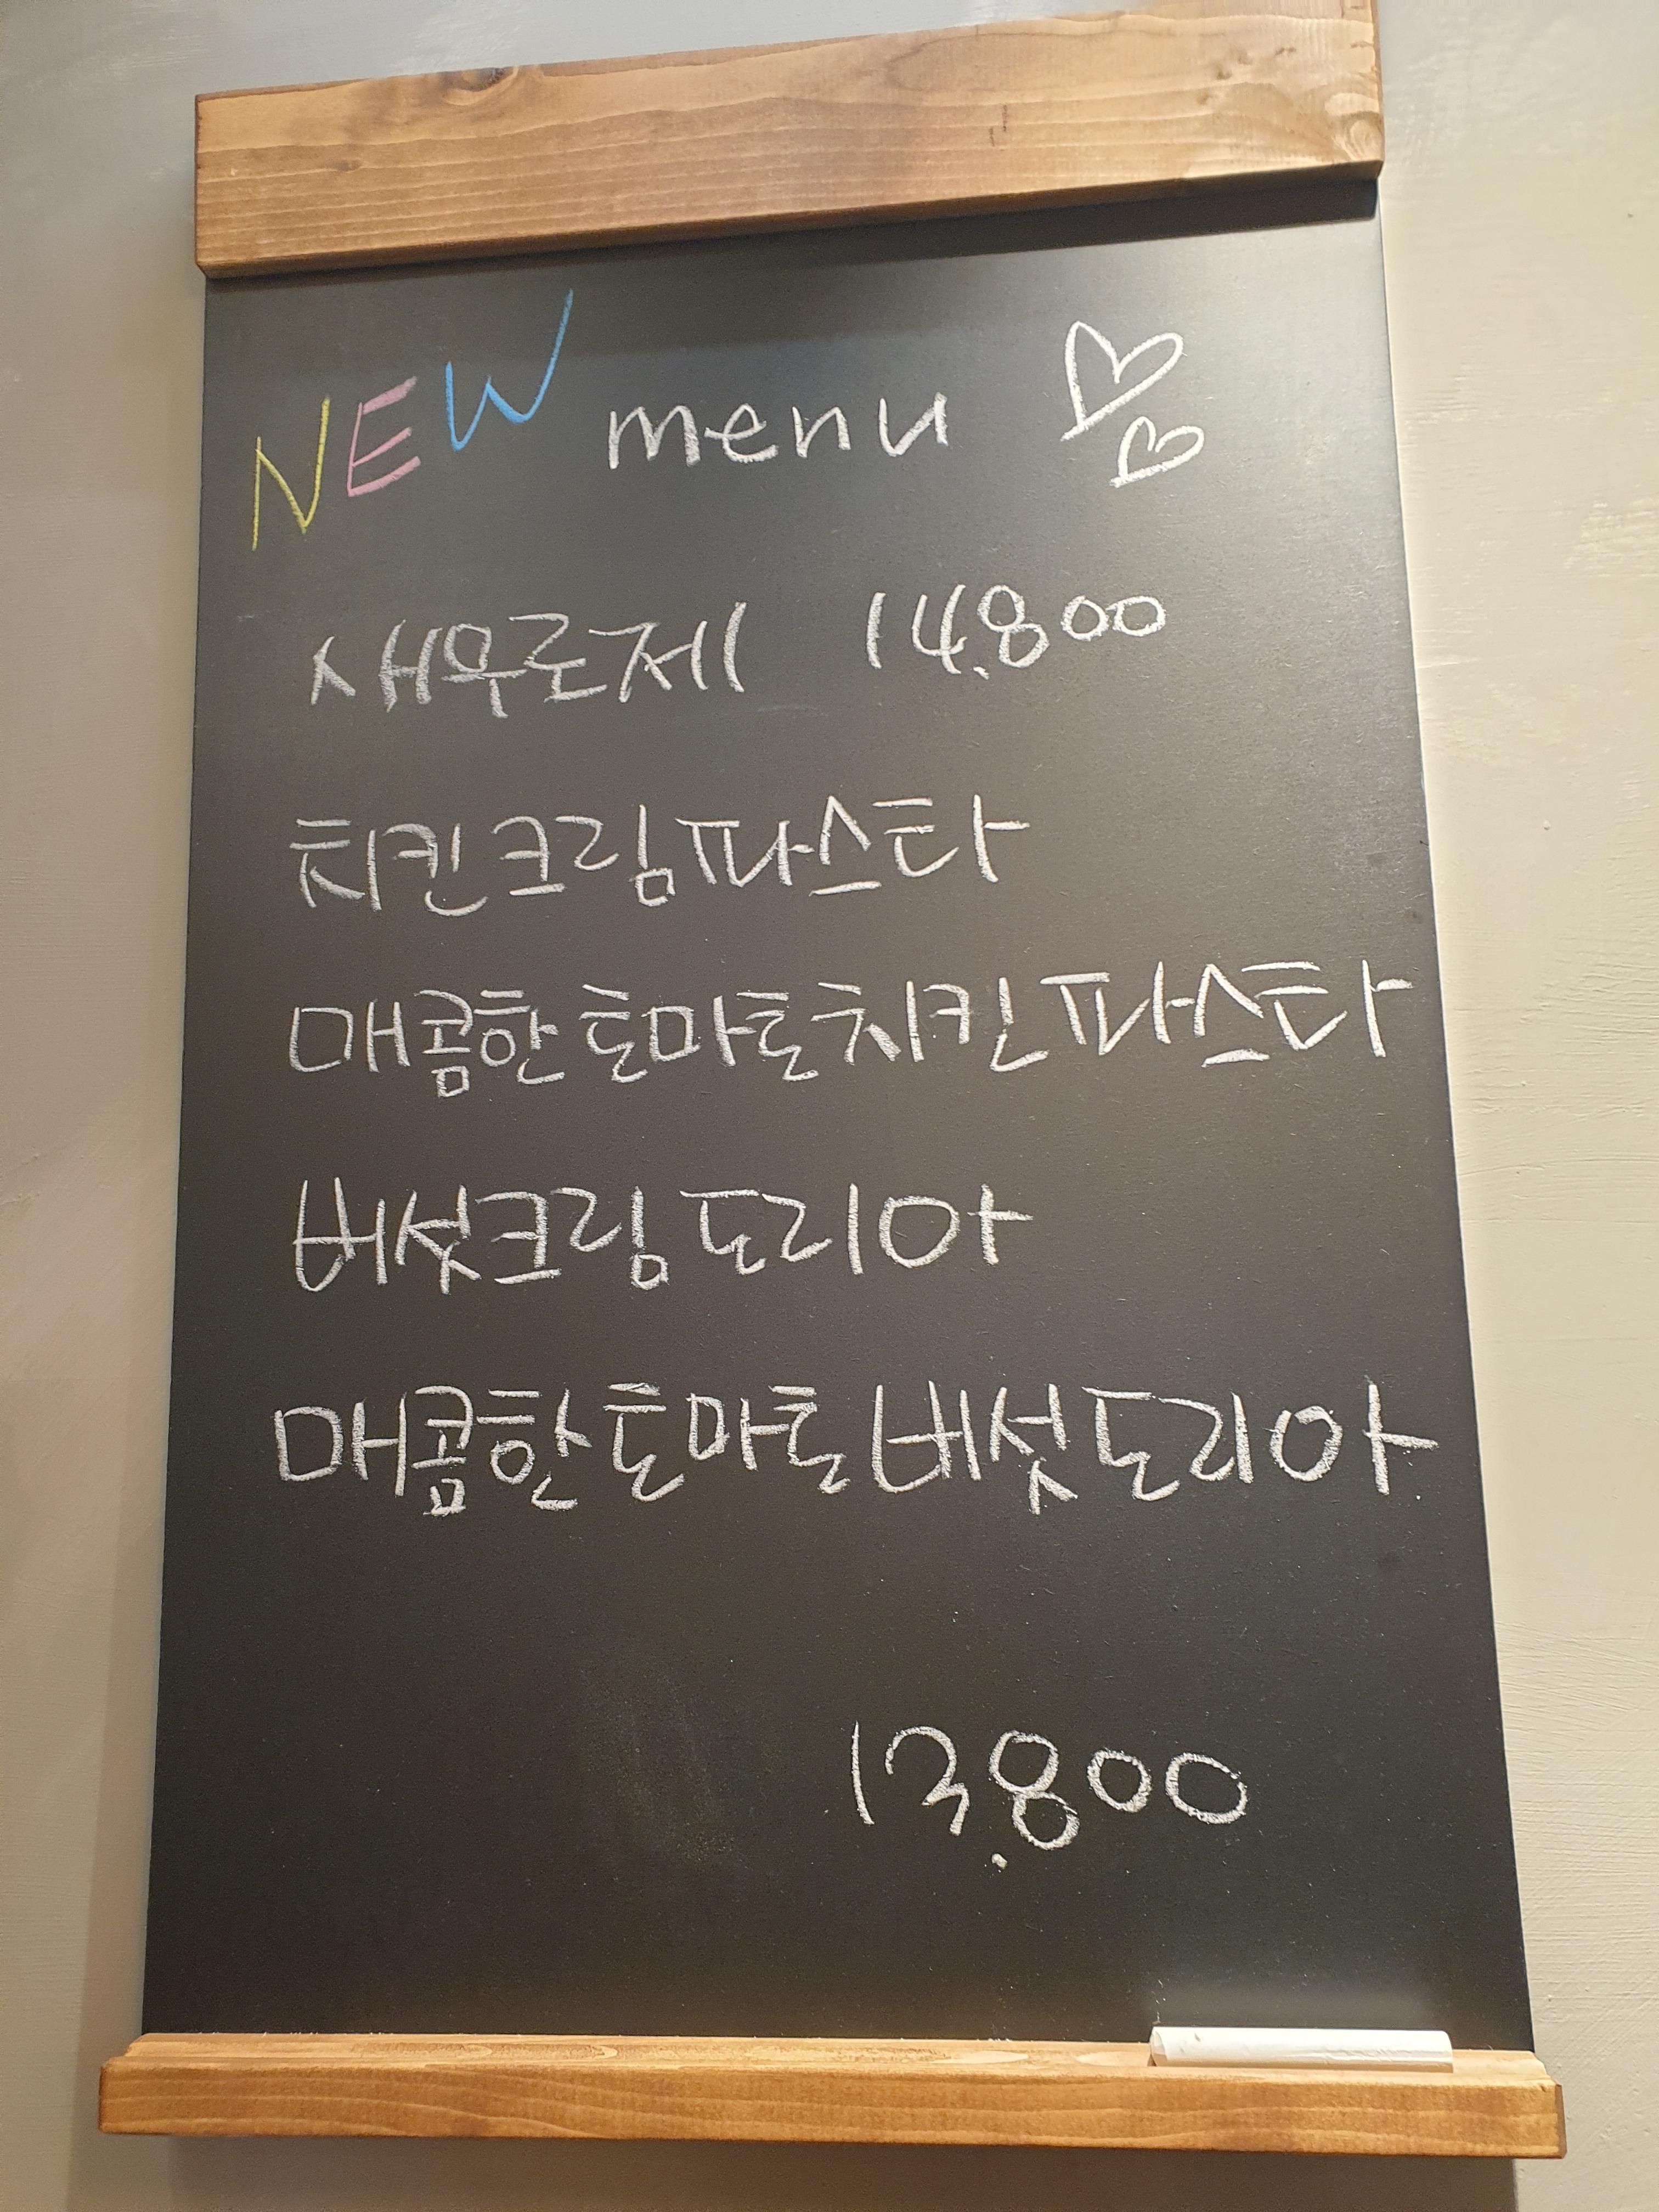 NEW menu
새우로제 14.800
치킨크림파스타
매콤한토마토치킨파스타
버섯크림도리아
매콤한토마토버섯도리아
13.800